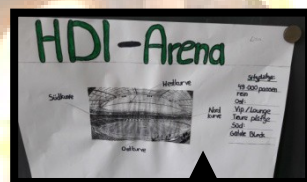 HDI-Arena
Westkurve
Südkurve
Nord
kurve
Ostkurve
Sitzplätze:
49.000 passen
rein
Ost:
Vip/Lounge
Teure plätze
Süd:
Gäste Block